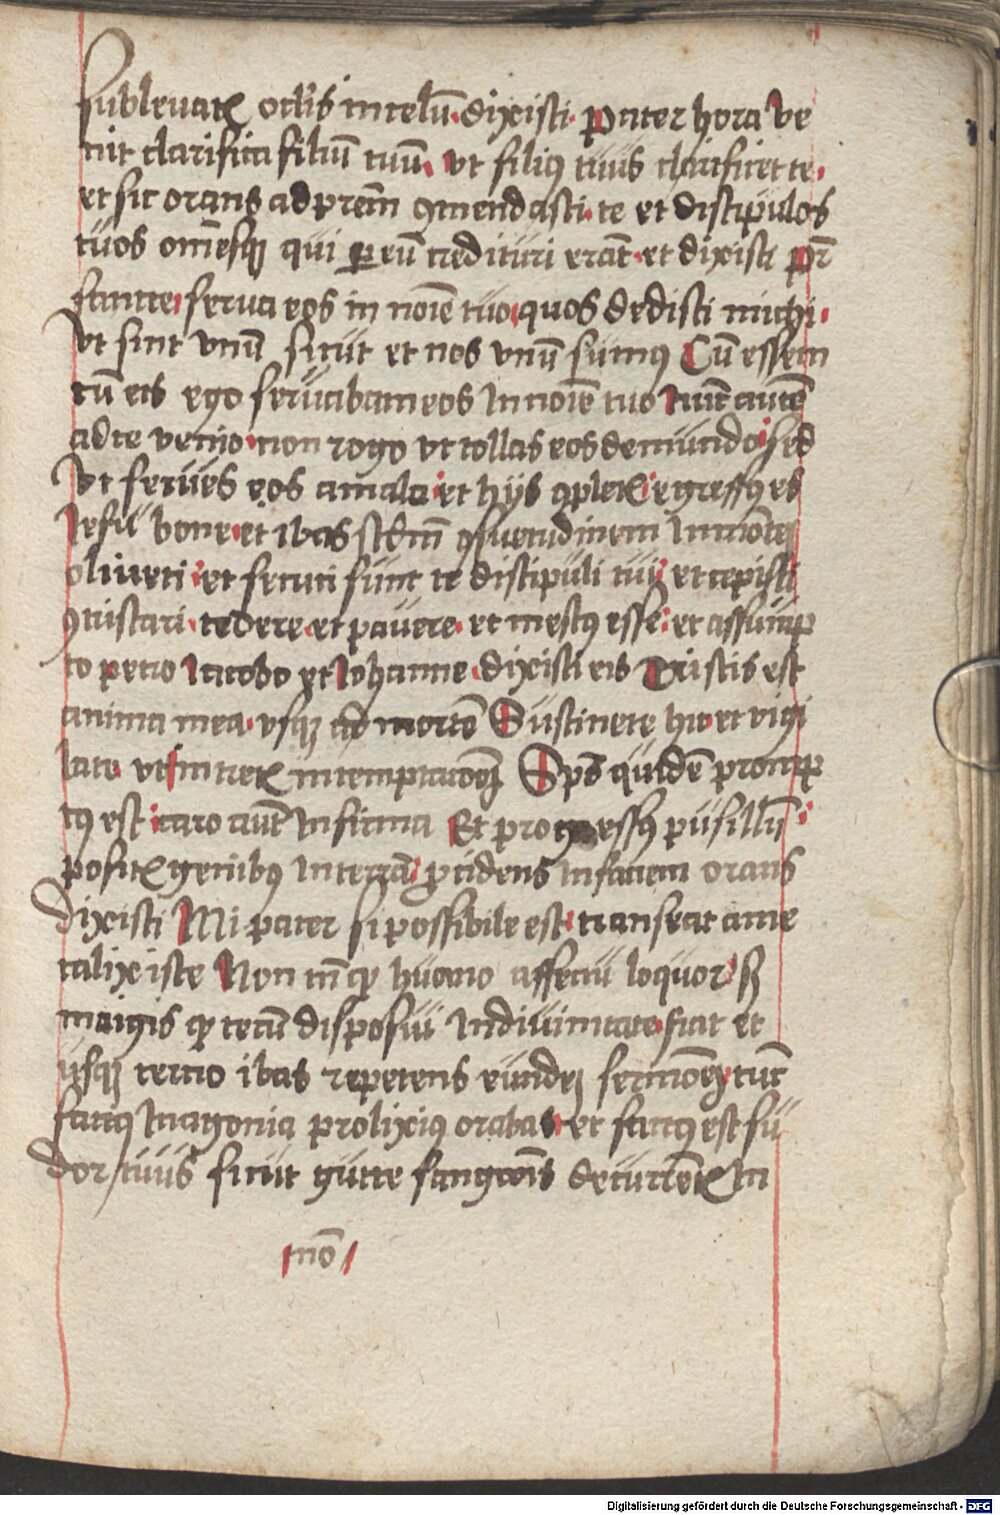 subleuatꝭ oclis in celū. dixisti. Pater hora ve
nit clarifica filiū tuū. vt filiꝰ tuus clarificet te.
et sic orans ad prēm ꝯmendasti. te et discipulos
tuos om̄esqꝫ qui per eū credituri erāt. et dixisti pr̄
sancte serua eos in noīe tuo quos dedisti michi.
vt sint vnū sicut et nos vnū sumꝰ Cū essem
cū eis ego seruabam eos In noīe tuo Nūc autē
ad te venio. non rogo vt tollas eos de mundo. sed
vt serues eos a malo. et hijs ꝯpletꝭ egressꝰ es
Iesu bone. et ibas scd̄m ꝯsuetudinem In mōtē
oliueti. et secuti sunt te discipuli tui. et cepisti
ꝯtristari. tedere. et pauere. et mestꝰ esse. et assump
to petro Iacobo et Iohanne. dixisti eis Tristis est
anima mea. vsqꝫ ad mortē Sustinete hic. et vigi
late vt in tretꝭ in temptacōeꝫ Spūs quidē promp
tꝰ est caro aūt Infirma Et progressꝰ pusillū
positꝭ genibus In terrā. ꝓcidens In faciem orans
dixisti Mi pater si possibile est. transeat a me
calix iste Non tn̄ ꝙ huano affectu loquor. sꝫ
maigis ꝙ tecū disposui In diuinitate. fiat et
vsqꝫ tercio ibas repetens eundeꝫ sermōeꝫ tūc
factꝰ In agonia prolixiꝰ orabas. et factꝰ est su
dor tuus sicut gutte sangwīs decurrētꝭ In
mō
Digitalisierung gefördert durch die Deutsche Forschungsgemeinschaft - DFG